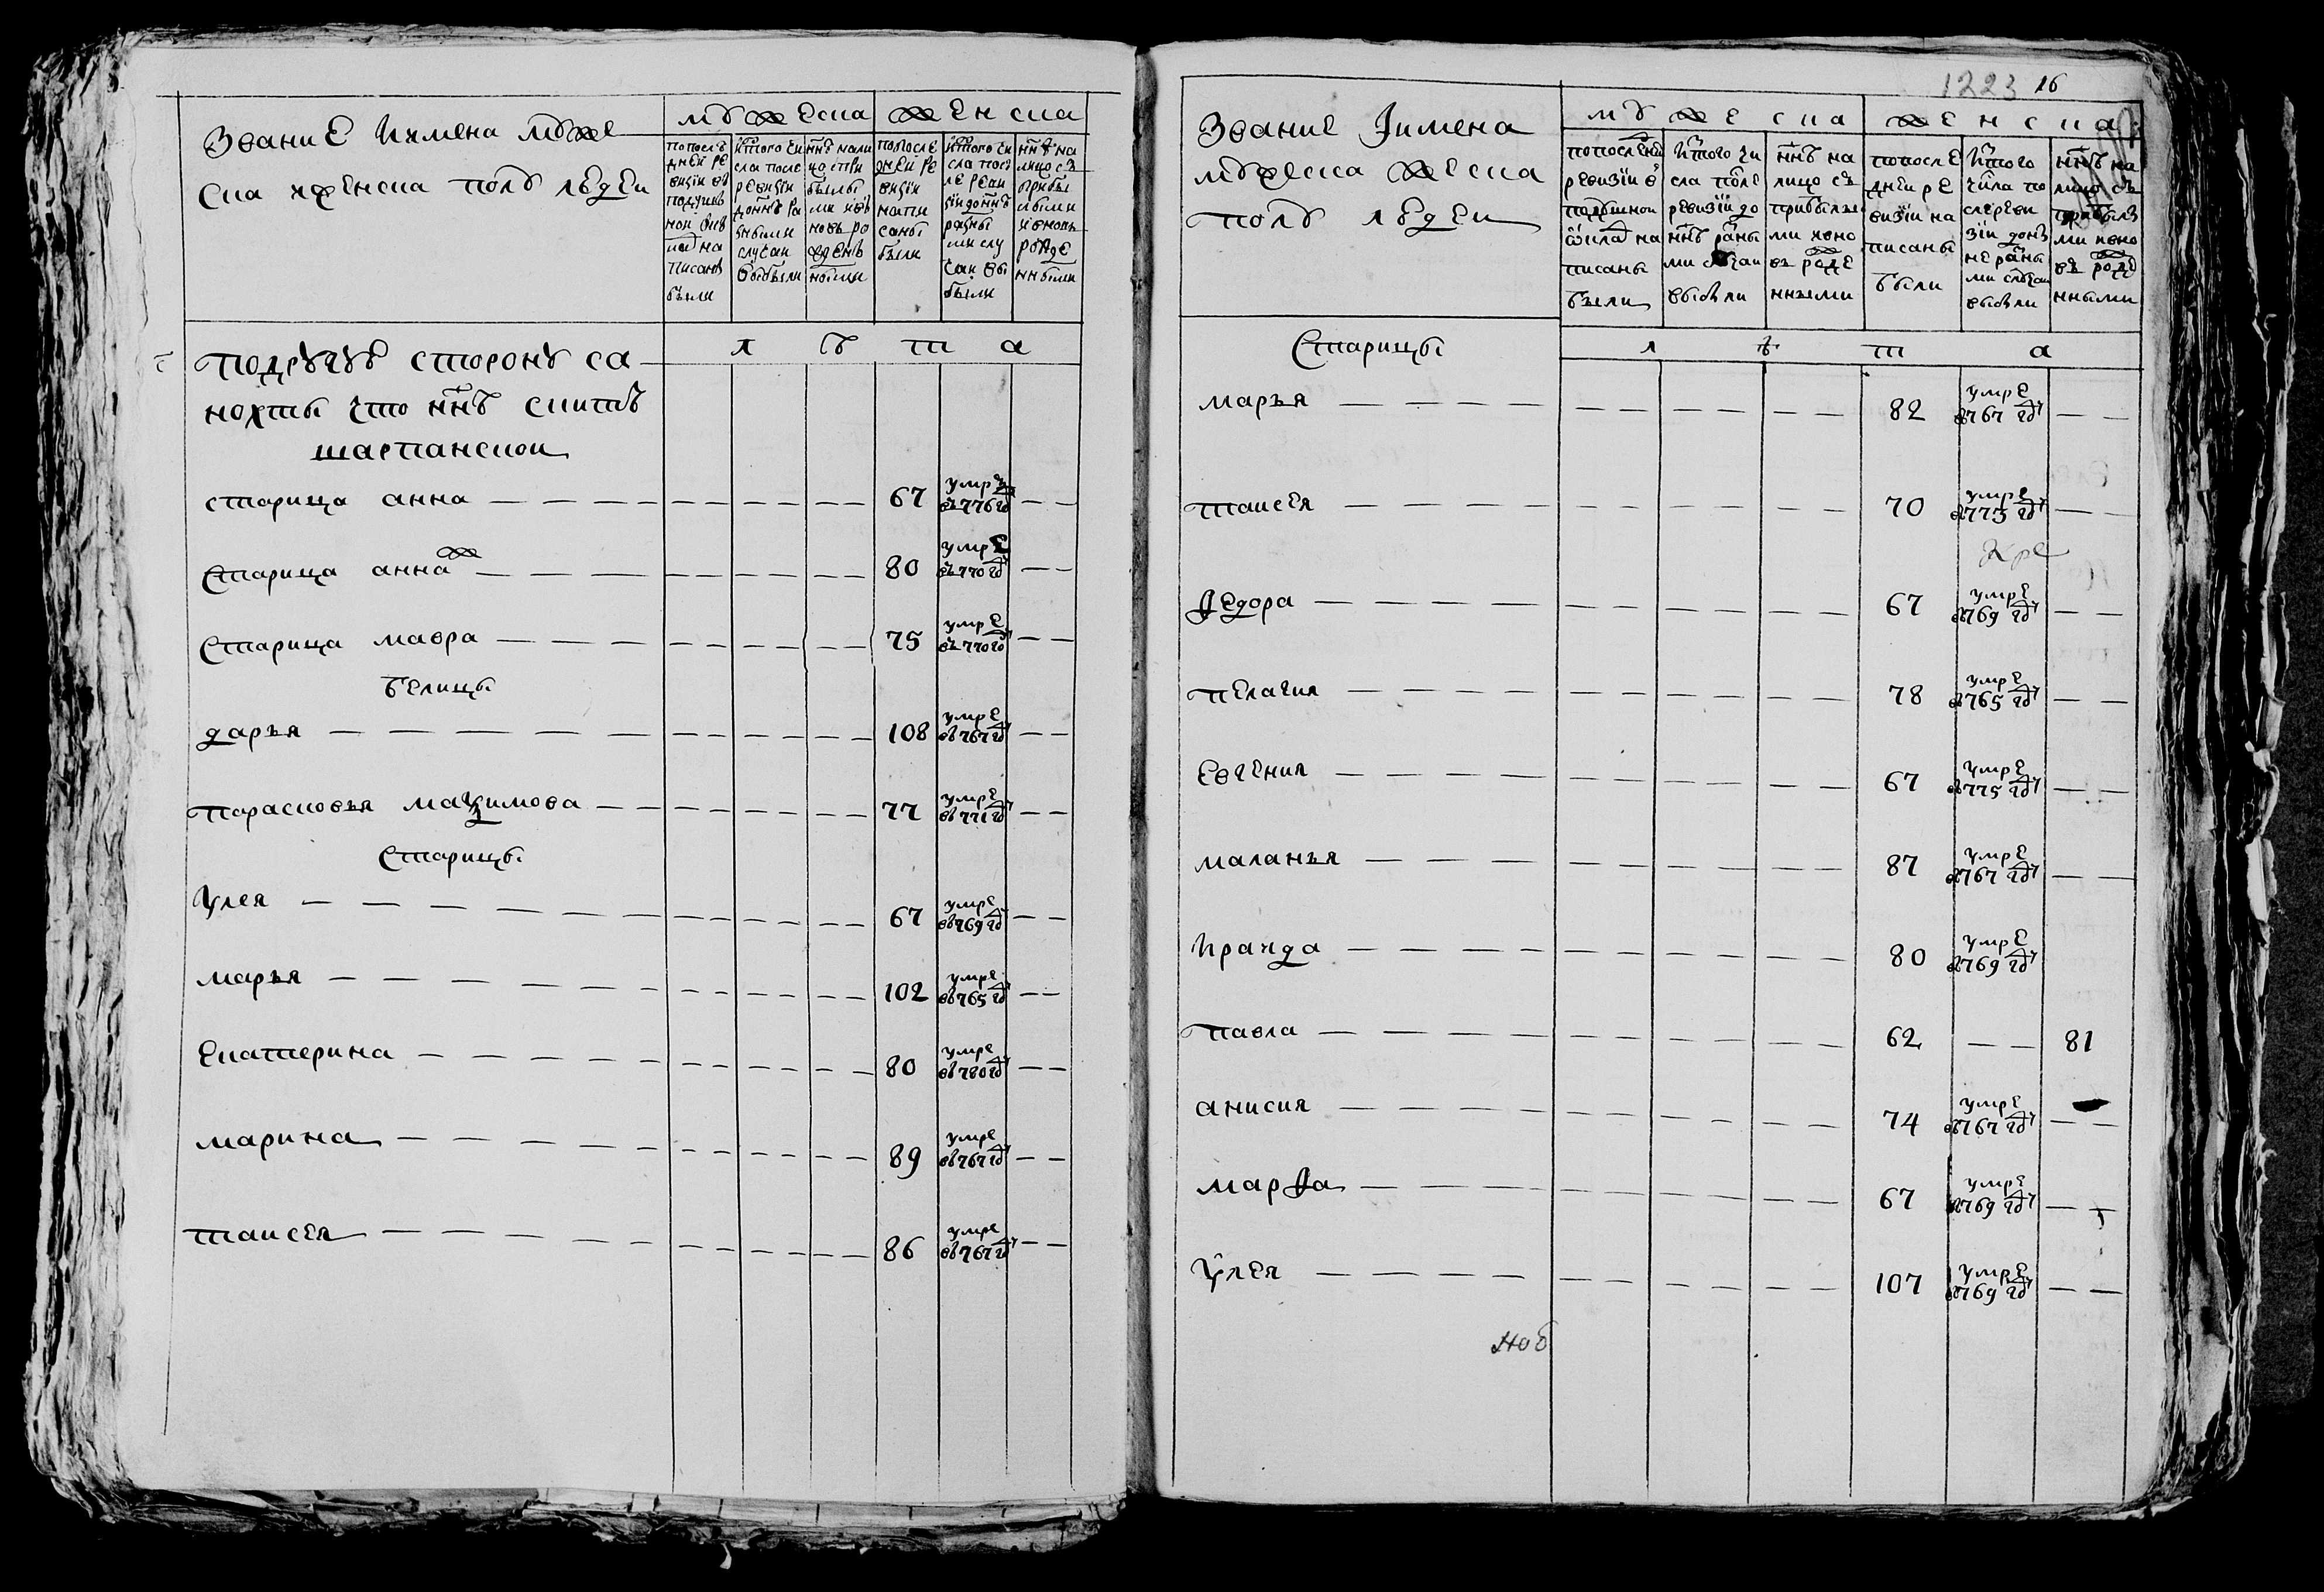 Звание И имена муже
ска иженска полу людеи
мужеска
женска
попослѣ
дней ре
визiи въ
подуше
нои
на
писаны
были
Истого чи
сла после
ревизiи
донне ра
зными
случаи
выбыли
ннѣ нали
цо спри
былы
ми ивъ
новь ро
жденъ
ными
попосле
дней ре
визiи
напи
саны
были
Истого чи
сла посл
ле реви
зiи доннѣ
разны
ми слу
чаи вы
были
ннѣ на
лицо съ
прибы
лыми
ивновь
рожде
нными
л ѣ т а
подругуе сторону са
нохты что ннѣ скитъ
шарпанскои
старица анна — — — — — — — — — 67 умре въ 776 гд — —
Старица анна же — — — — — — — — — 80 умре въ 770 гд — —
Старица мавра — — — — — — — — — 75 умре въ 770 гд — —
белицы
дарья — — — — — — — — — — — — 108 умре въ 767 гд — —
парасковья мазимова — — — — — — — — 77 умре въ 771 гд — —
Старицы
Улея — — — — — — — — — — — — 67 умре въ 769 гд — —
марья — — — — — — — — — — — — 102 умре въ 765 гд — —
Екатерина — — — — — — — — — — — 80 умре въ 780 гд — —
марина — — — — — — — — — — — 89 умре въ 767 гд — —
таисея — — — — — — — — — — — 86 умре въ 767 г — —
1223 16
Звание Iимена
мужеска жеска
полу людеи
м у ж е с к а
ж е н с к а
попослѣдней
ревизiи в
подушнои
на
писаны
были
Истого чи
сла после
ревизiи до
ннѣ разны
ми случаи
выбыли
ннѣ на
лицо съ
прибылы
ми ивно
въ рожде
нными
попосле
днеи ре
визiи на
писаны
были
Истого
числа по
слереви
зiи дон
не разны
ми случаи
выбыли
ннѣ на
лицо съ
прибылы
ми ивно
въ рожде
нными
Старицы
л ѣ т а
марья — — — — — — — — — — 82 умре в 767 гд — —
таисея — — — — — — — — — — 70 умре в 773 гд — —
Федора — — — — — — — — — — 67 умре в 769 гд — —
пелагия — — — — — — — — — — 78 умре в 765 гд — —
Евгения — — — — — — — — — — 67 умре в 775 гд — —
маланья — — — — — — — — — — 87 умре в 767 гд — —
Ираида — — — — — — — — — — 80 умре в 769 гд
павла — — — — — — — — — — 62 — — 81
анисия — — — — — — — — — — 74 умре в 767 гд — —
марфа — — — — — — — — — — 67 умре в 769 гд — —
Улея — — — — — — — — — — 107 умре в 769 гд — —